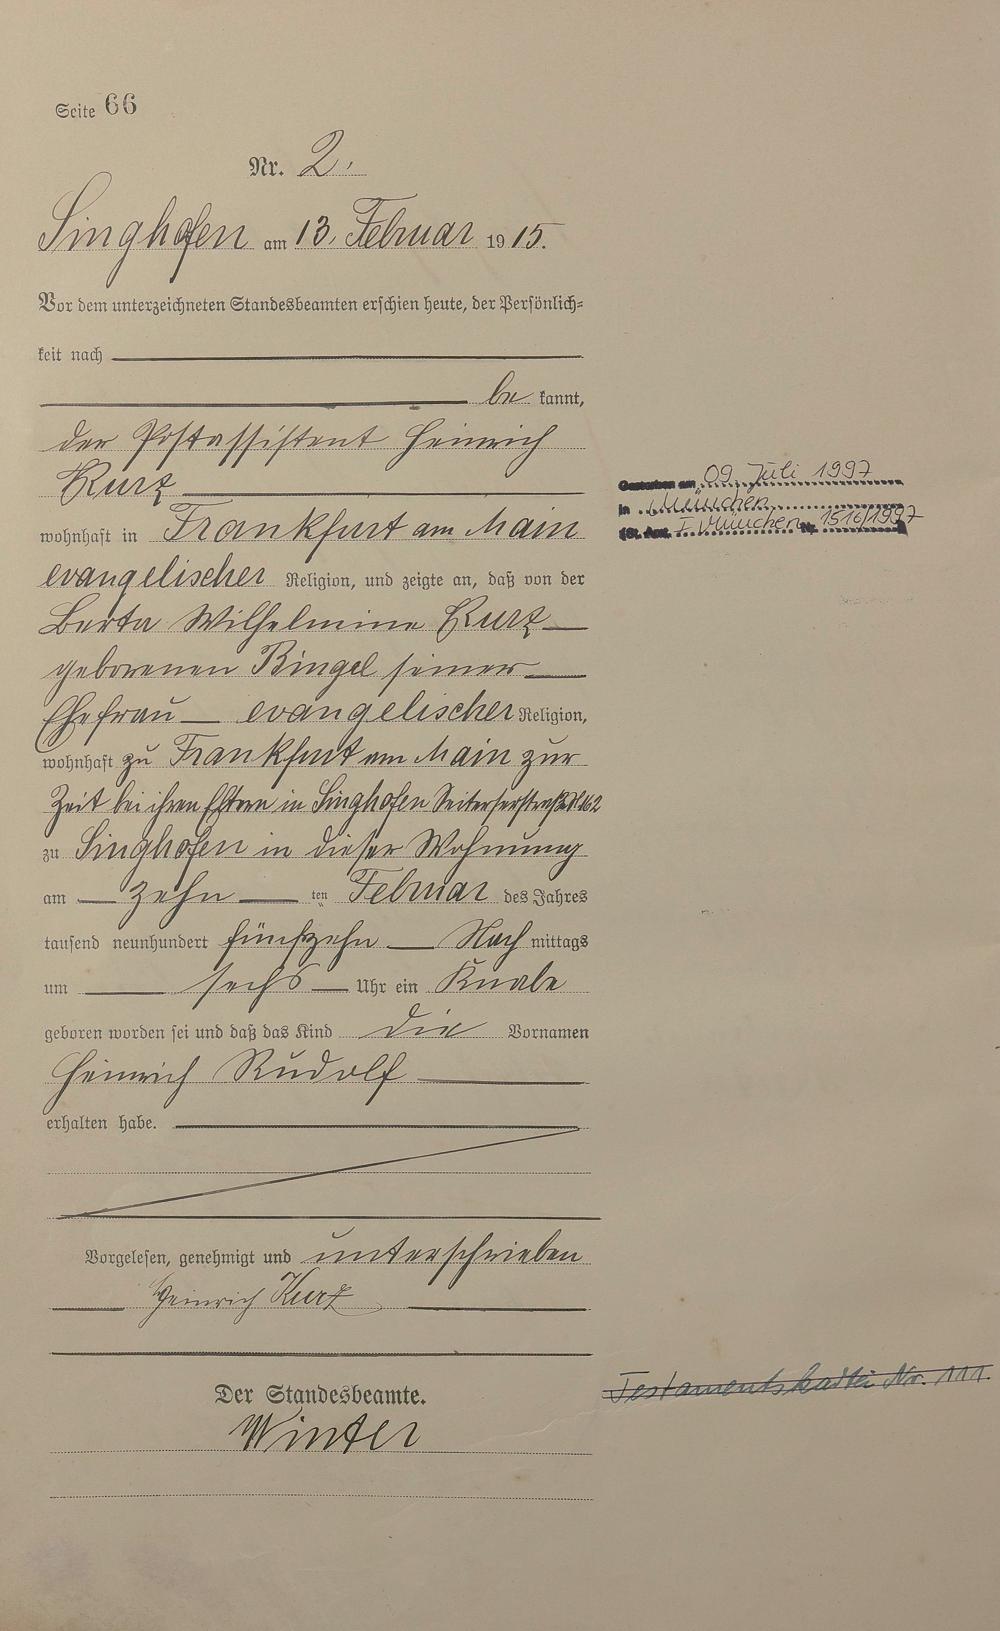 Seite 66
Nr. 2.
Singhofen am 13. Februar 1915.
Vor dem unterzeichneten Standesbeamten erschien heute, der Persönlich=
keit nach
be kannt,
der Postassistent Heinrich
Kurz
wohnhaft in Frankfurt am Main
evangelischer Religion, und zeigte an, daß von der
Berta Wilhelmine Kurz
geborenen Bingel seiner
Ehefrau evangelischer Religion,
wohnhaft zu Frankfurt am Main zur
Zeit bei ihren Eltern in Singhofen
zu Singhofen in dieser Wohnung
am zehn ten Februar des Jahres
tausend neunhundert fünfzehn Nach mittags
um sechs Uhr ein Knabe
geboren worden sei und daß das Kind die Vornamen
Heinrich Rudolf
erhalten habe.
Vorgelesen, genehmigt und unterschrieben
Heinrich Kurz
Der Standesbeamte.
Winter
Gestorben am 09. Juli 1997
in München
(St. Amt I München Nr. 1516/1997
Testamentskartei Nr. 111.